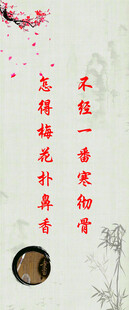 不经一番寒彻骨
怎得梅花扑鼻香